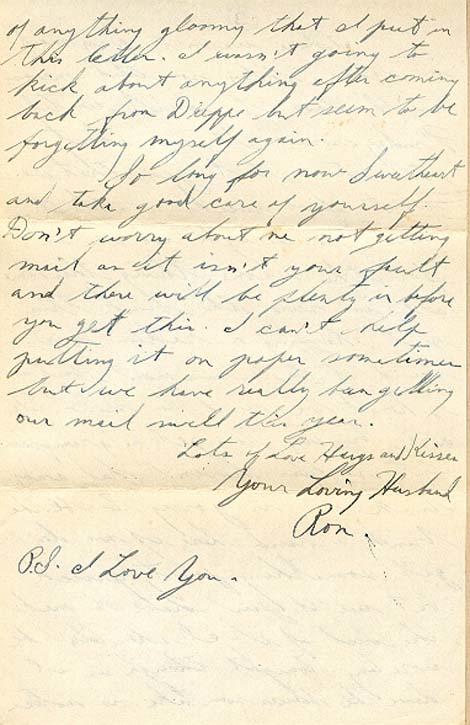 of anything gloomy that I put in
this letter. I wasn't going to
kick about anything after coming
back from Dieppe but seem to be
forgetting myself again.
So long for now Sweetheart
and take good care of yourself.
Don't worry about me not getting
mail as it isn't your fault
and there will be plenty in before
you get this. I can't help
putting it on paper sometimes
but we have really been getting
our mail swell this year.
Lots of Love Hugs and Kisses
Your Loving Husband
Ron.
P.S. I Love You.